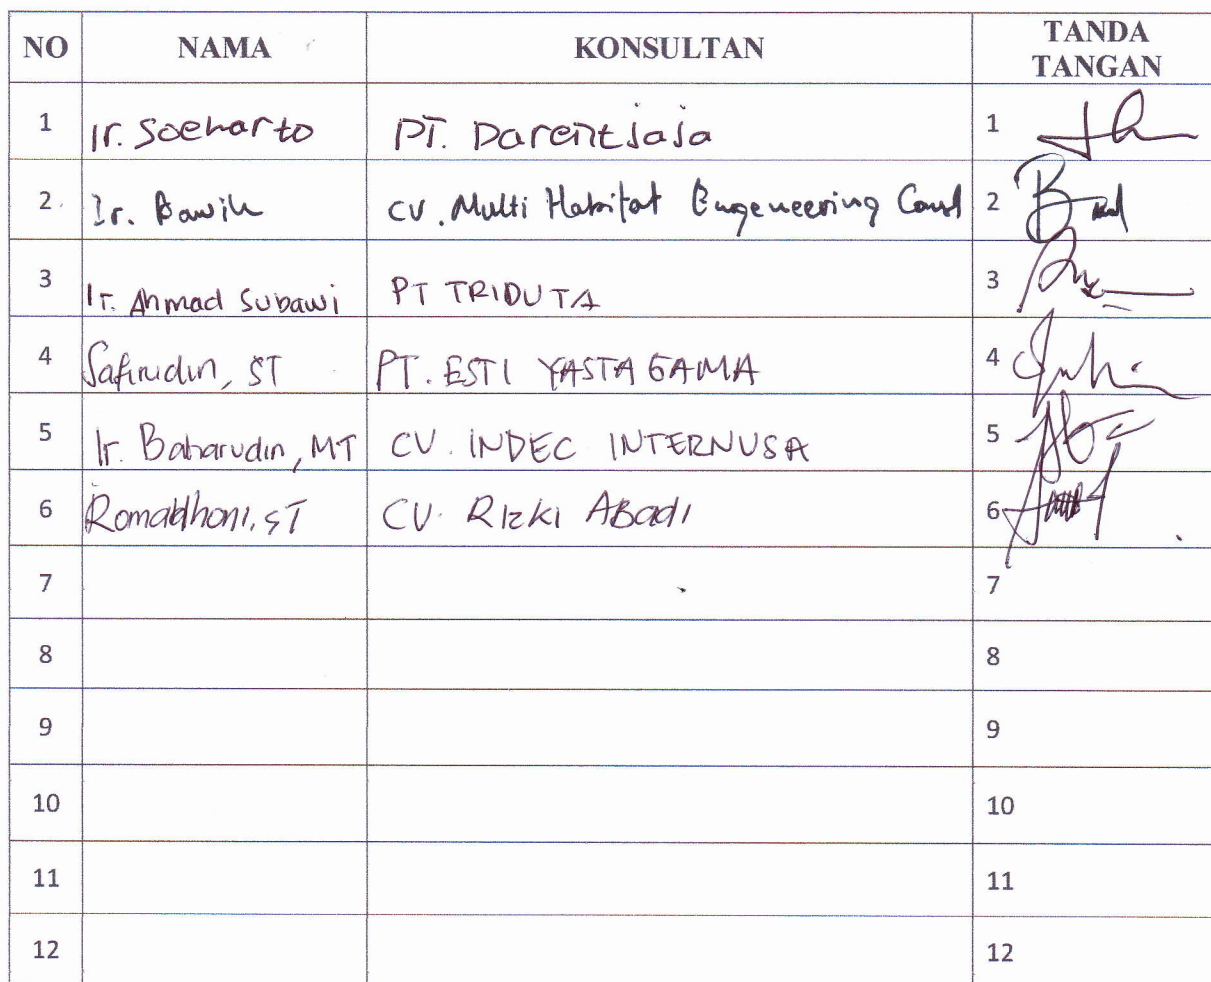 NO NAMA KONSULTAN TANDA TANGAN
1 Ir. Soeharto PT. Darentjaja 1
2 Ir. Bawih CV. Multi Habitat Engeneering Const 2
3 Ir. Ahmad Subawi PT TRIDUTA 3
4 Safirudin, ST PT. ESTI YASTAGAMA 4
5 Ir. Baharudin, MT CV. INDEC INTERNUSA 5
6 Romadhoni, ST CV. Rizki Abadi 6
7 7
8 8
9 9
10 10
11 11
12 12